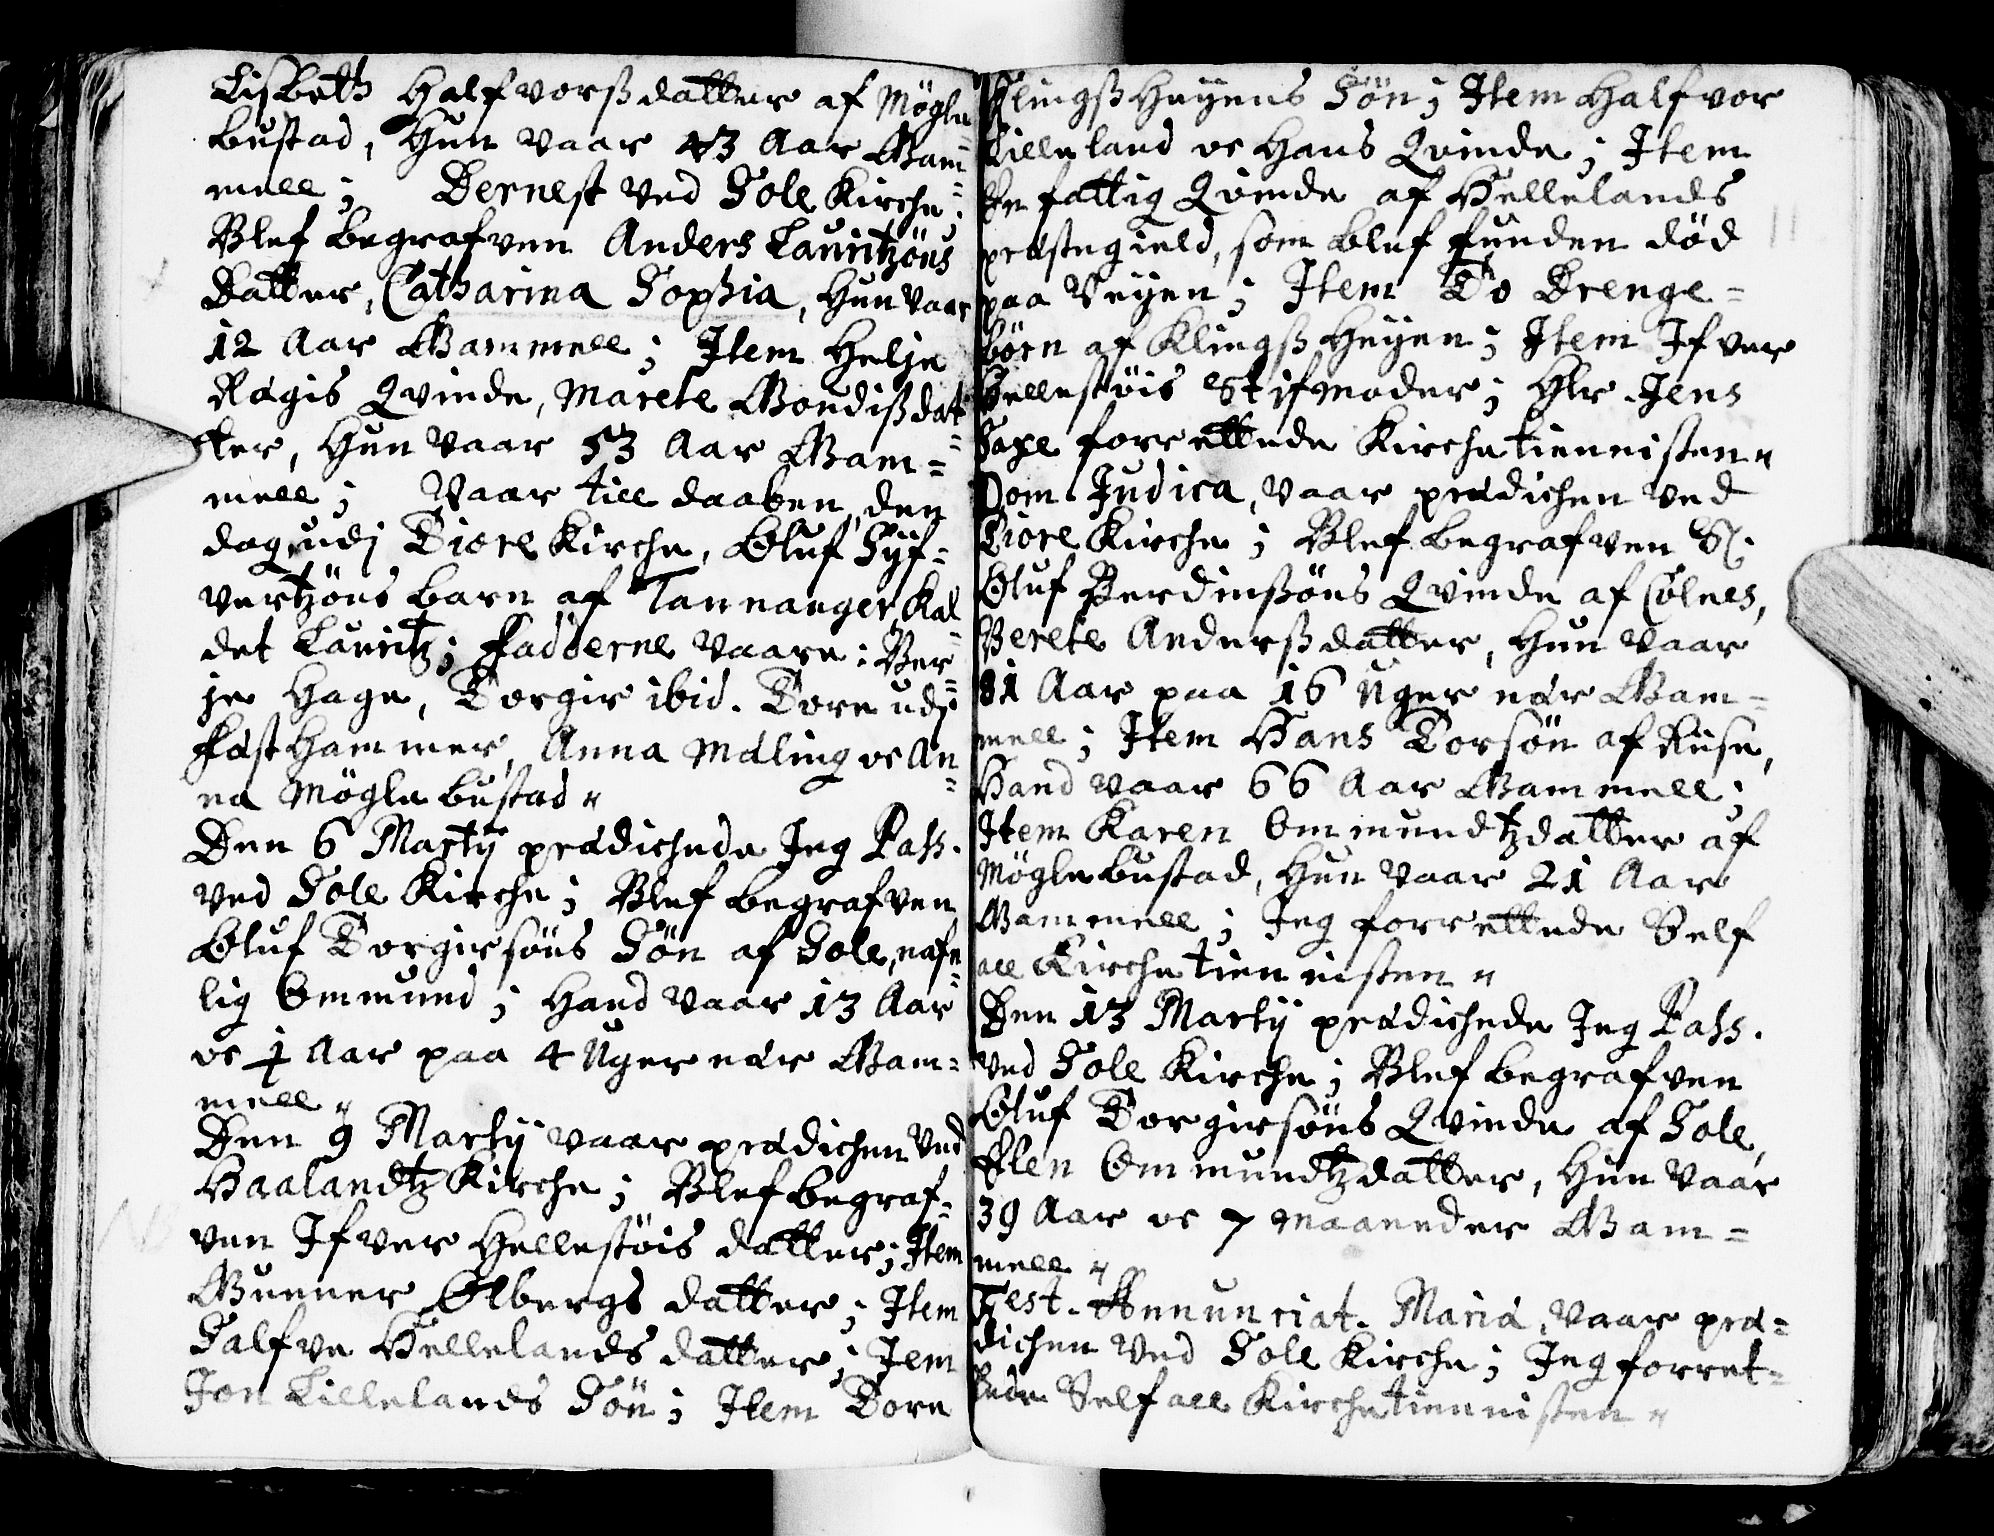 Lisbeth Halfvorßdatter af Mögle
bustad, Hun vaar 43 Aar Gam-
mell; Dernest ved Sole Kirche;
Blef begrafven Anders Lauritzöns
Datter, Catharina Sophia, Hun vaar
12 Aar Gammell; Item Helje
Rægis Qvinde, Marete Gondißdat
ter, Hun vaar 53 Aar Gam=
mell; Vaar till daaben, den
dag, udj Tiore Kirche, Oluf Syf=
vertzöns barn af Tannanger, Kal
det Lauritz; Fadderne vaare: Ber
je Hage, Torgir ibid. Tore udj
Fasthammer, Anna Mæling oc An
na Möglebustad "
Den 6 Martij prædichede Jeg Pass.
ved Sole Kirche; Blef begrafven
Oluf Torgirsöns Sön af Sole, nafn
lig Ommund; Hand vaar 13 Aar
oc ½ Aar paa 4 Uger nær Gam=
mell "
Den 9 Martij vaar prædichen ved
Haalandtz Kirche; Blef begraf=
ven Ifver Hellestöis datter; Item
Gunner Ølbergs datter; Item
Salfve Hellelands datter; Jem
Jon Lillelands Sön; Item Tore
Klingßheyens Sön; Item Halfvor
Lilleland oc Hans Qvinde; Item
En fattig Qvinde af Hellelands
præstegield, som blef funden död
paa Veyen; Item To Drenge=
börn af Klingßheyen; Item Ifver
Hellestöis Stifmoder; Hr. Jens
Saxe forrettede Kirchetiennisten "
Dom. Judica, vaar prædichen ved
Tiore Kirche; Blef begrafven Sl.
Oluf Berdinßöns Qvinde af Cölnes,
Berete Anderßdatter, Hun vaar
81 Aar paa 16 Uger nær Gam=
mell; Item Hans Torsön af Riise,
Hand vaar 66 Aar Gammell;
Item Karen Ommundtzdatter af
Möglebustad, Hun vaar 21 Aar
Gammell; Jeg forrettede Self
all Kirchetiennisten "
Den 13 Martij prædichede Jeg Pass.
ved Sole Kirche; Blef begrafven
Oluf Torgirsöns Qvinde af Sole,
Elen Ommundtzdatter, Hun vaar
39 Aar oc 7 Maaneder Gam=
mell "
Fest. Annunciat. Mariæ, vaar præ=
dichen ved Sole Kirche; Jeg forret=
tede Self all Kirchetiennisten "